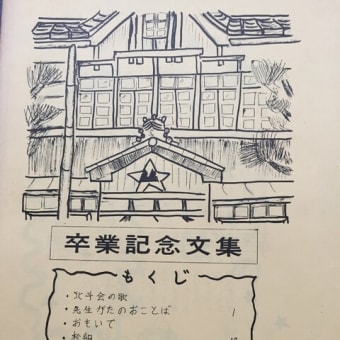 卒業記念文集
もくじ
・北斗会の歌
・先生がたのおことば 1
・おもいで